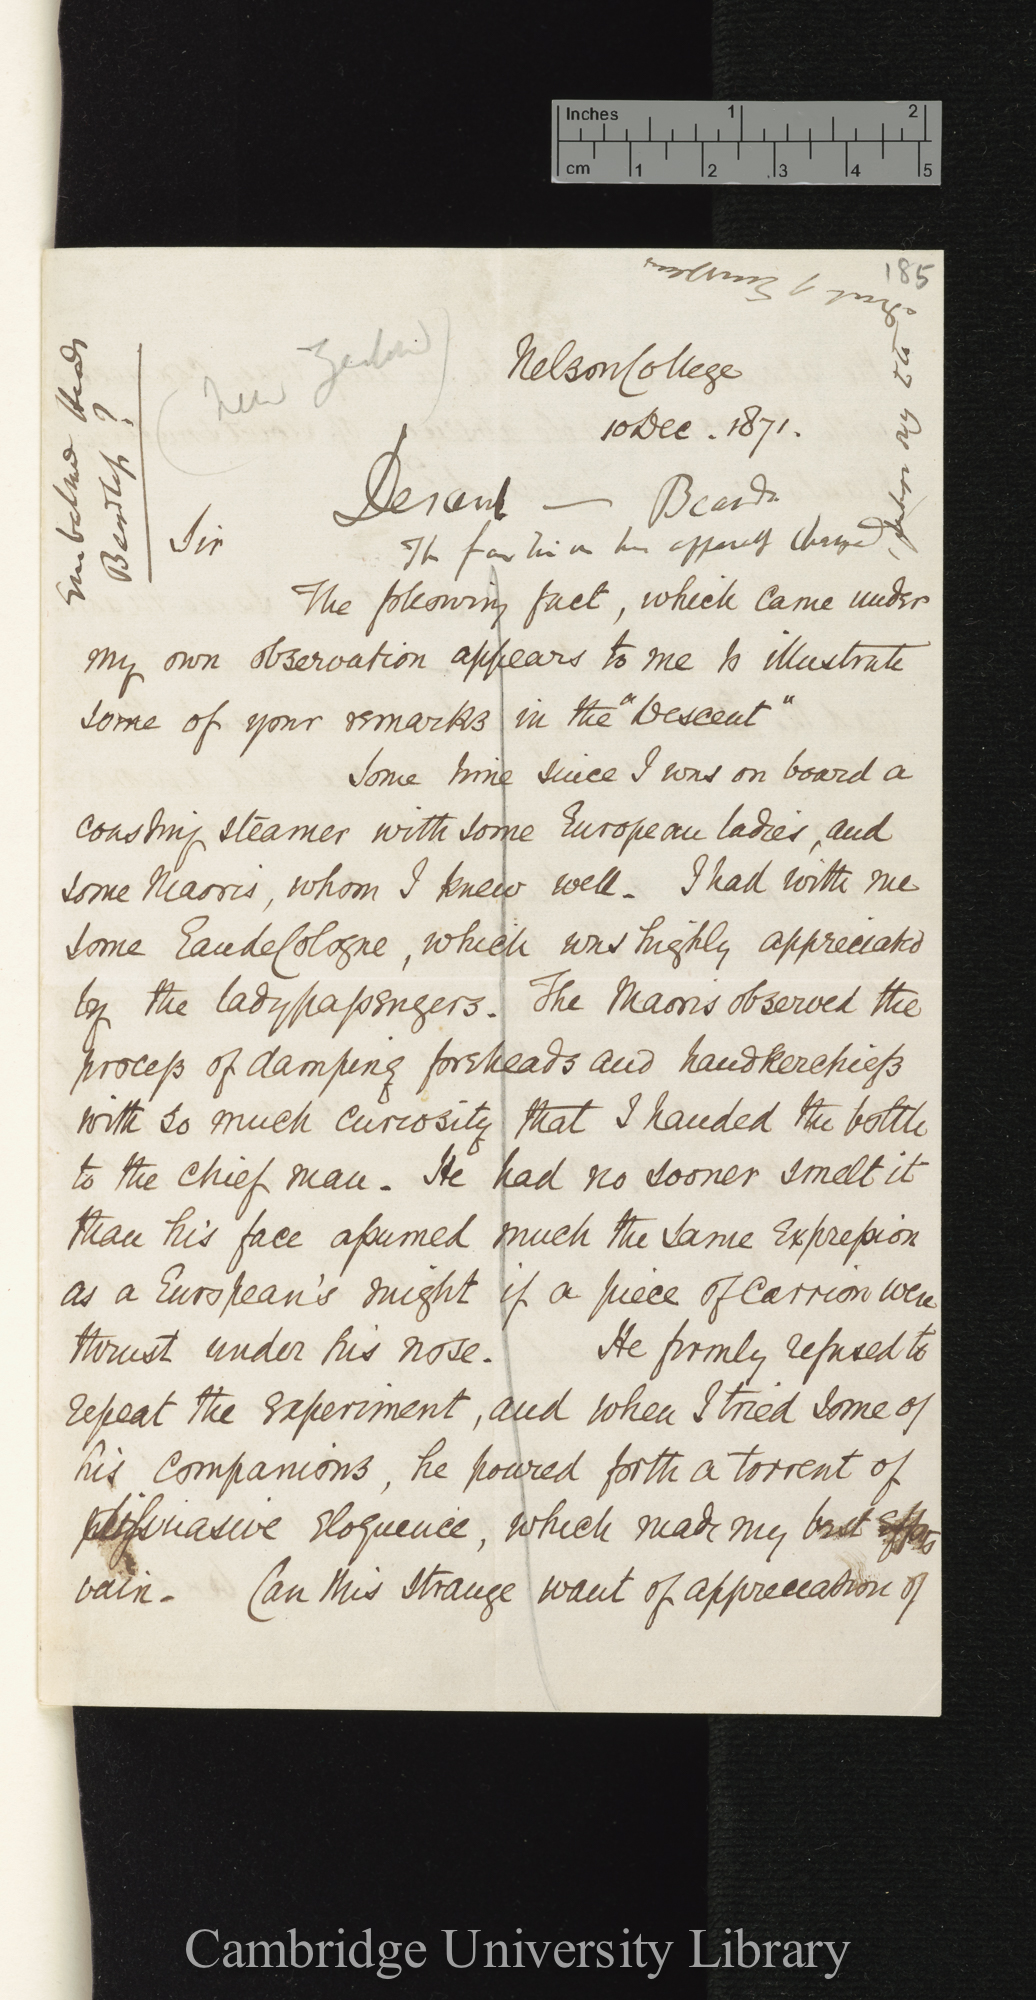 Inches 1 2
cm 1 2 3 4 5
185
(New Zealand)
Nelson College
10 Dec. 1871.
Beardless?
Descent — Beards
Sir
The fashion has apparently changed
The following fact, which came under
my own observation appears to me to illustrate
some of your remarks in the "Descent"
Some time since I was on board a
coasting steamer with some European ladies, and
some Maoris, whom I knew well. I had with me
some Eau de Cologne, which was highly appreciated
by the lady passengers. The Maoris observed the
process of damping foreheads and handkerchiefs
with so much curiosity that I handed the bottle
to the chief man. He had no sooner smelt it
than his face assumed much the same expression
as a European's might if a piece of carrion were
thrust under his nose. He firmly refused to
repeat the experiment, and when I tried some of
his companions, he poured forth a torrent of
dissuasive eloquence, which made my best efforts
vain. Can this strange want of appreciation of
Cambridge University Library